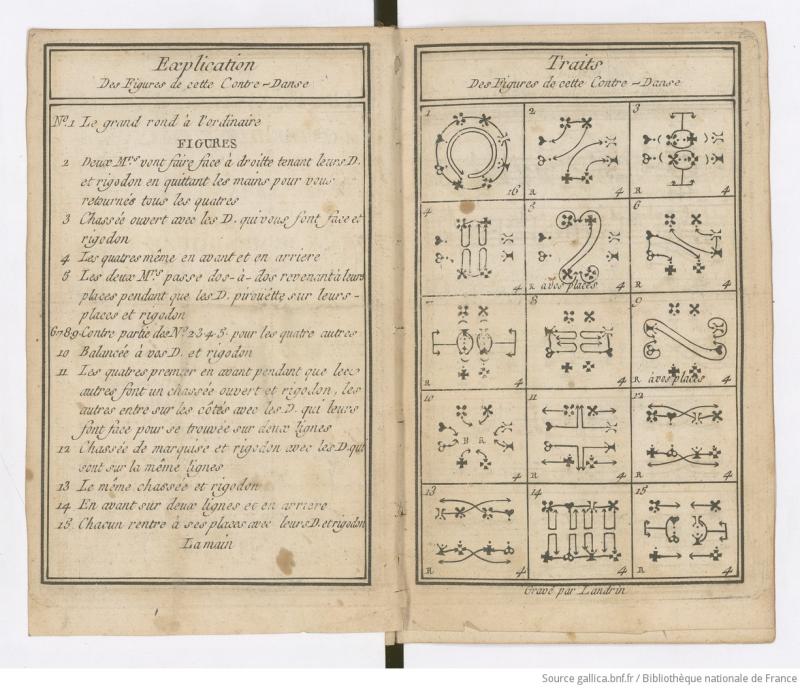 Explication
Des Figures de cette Contre-Danse
Nº.1 Le grand rond à l'ordinaire
FIGURES
2 Deux Mrs vont faire face à droitte tenant leurs D.
et rigodon en quittant les mains pour vous
retournés tous les quatres
3 Chassée ouvert avec les D. qui vous font face et
rigodon
4 Les quatres même en avant et en arriere
5 Les deux Mrs passe dos-à-dos revenant à leurs
places pendant que les D. pirouëtte sur leurs-
places et rigodon
6789 Contre partie des Nº 2345 pour les quatre autres
10 Balancée à vos D. et rigodon
11 Les quatres premier en avant pendant que les
autres font un chassée ouvert et rigodon, les
autres entre sur les côtés avec les D. qui leurs
font face pour se trouvée sur deux lignes
12 Chassée de marquise et rigodon avec les D. qui
sont sur la même lignes
13 Le même chassée et rigodon
14 En avant sur deux lignes et en arriere
15 Chacun rentre à ses places avec leurs D. et rigodon
La main
Traits
Des Figures de cette Contre-Danse
1 2 3
16 R 4 R 4
4 5 6
4 R à vos places R 4
7 8 9
R 4 4 R à vos places
10 11 12
R R
4 R 4 R 4
13 14 15
R 4 4 R 4
Gravé par Landrin
Source gallica.bnf.fr / Bibliothèque nationale de France